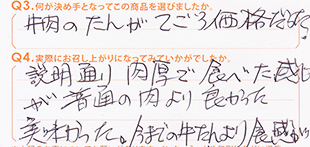 Q3.何が決め手となってこの商品を選びましたか。
牛肉のたんがてごろ価格だな
Q4.実際にお召し上がりになってみていかがでしたか。
説明通り肉厚で食べた感じ
が普通の肉より良かった
美味かった。今までの牛たんより食感が